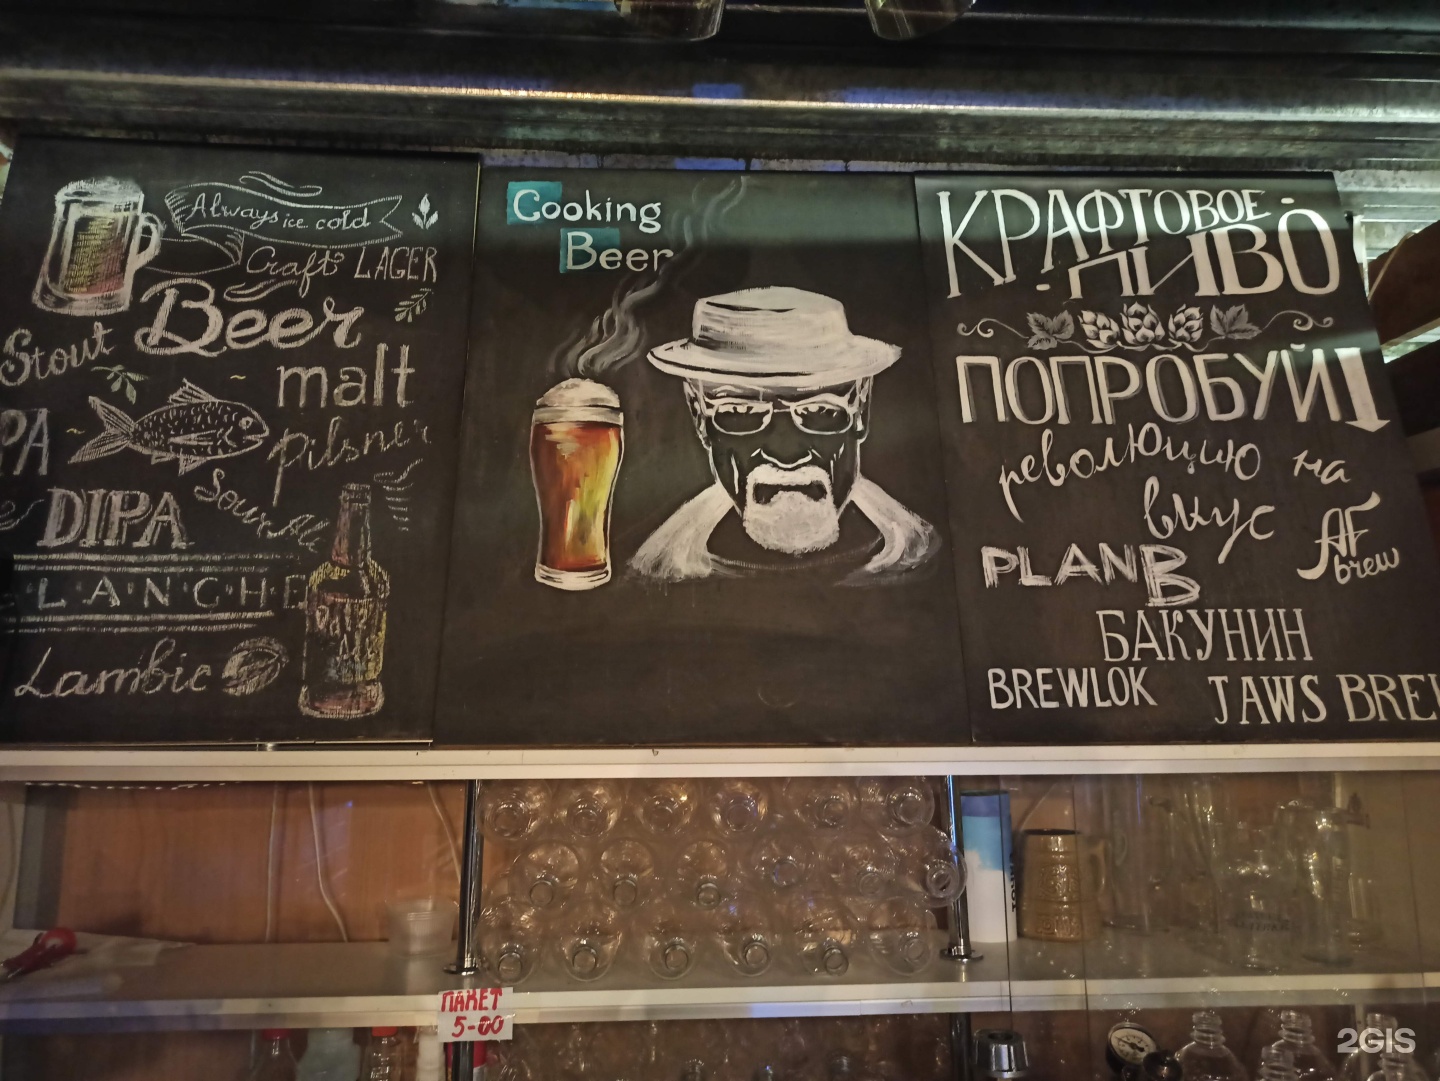 Always ice cold
Craft LAGER
Beer
Stout
malt
PA
pilsner
DIPA
Sour Ale
LANCHE
Lambic
Cooking
Beer
КРАФТОВОЕ
ПИВО
ПОПРОБУЙ!
революцию на
вкус
AF
brew
PLAN B
БАКУНИН
BREWLOK
JAWS BREW
ПАКЕТ
5-00
2GIS